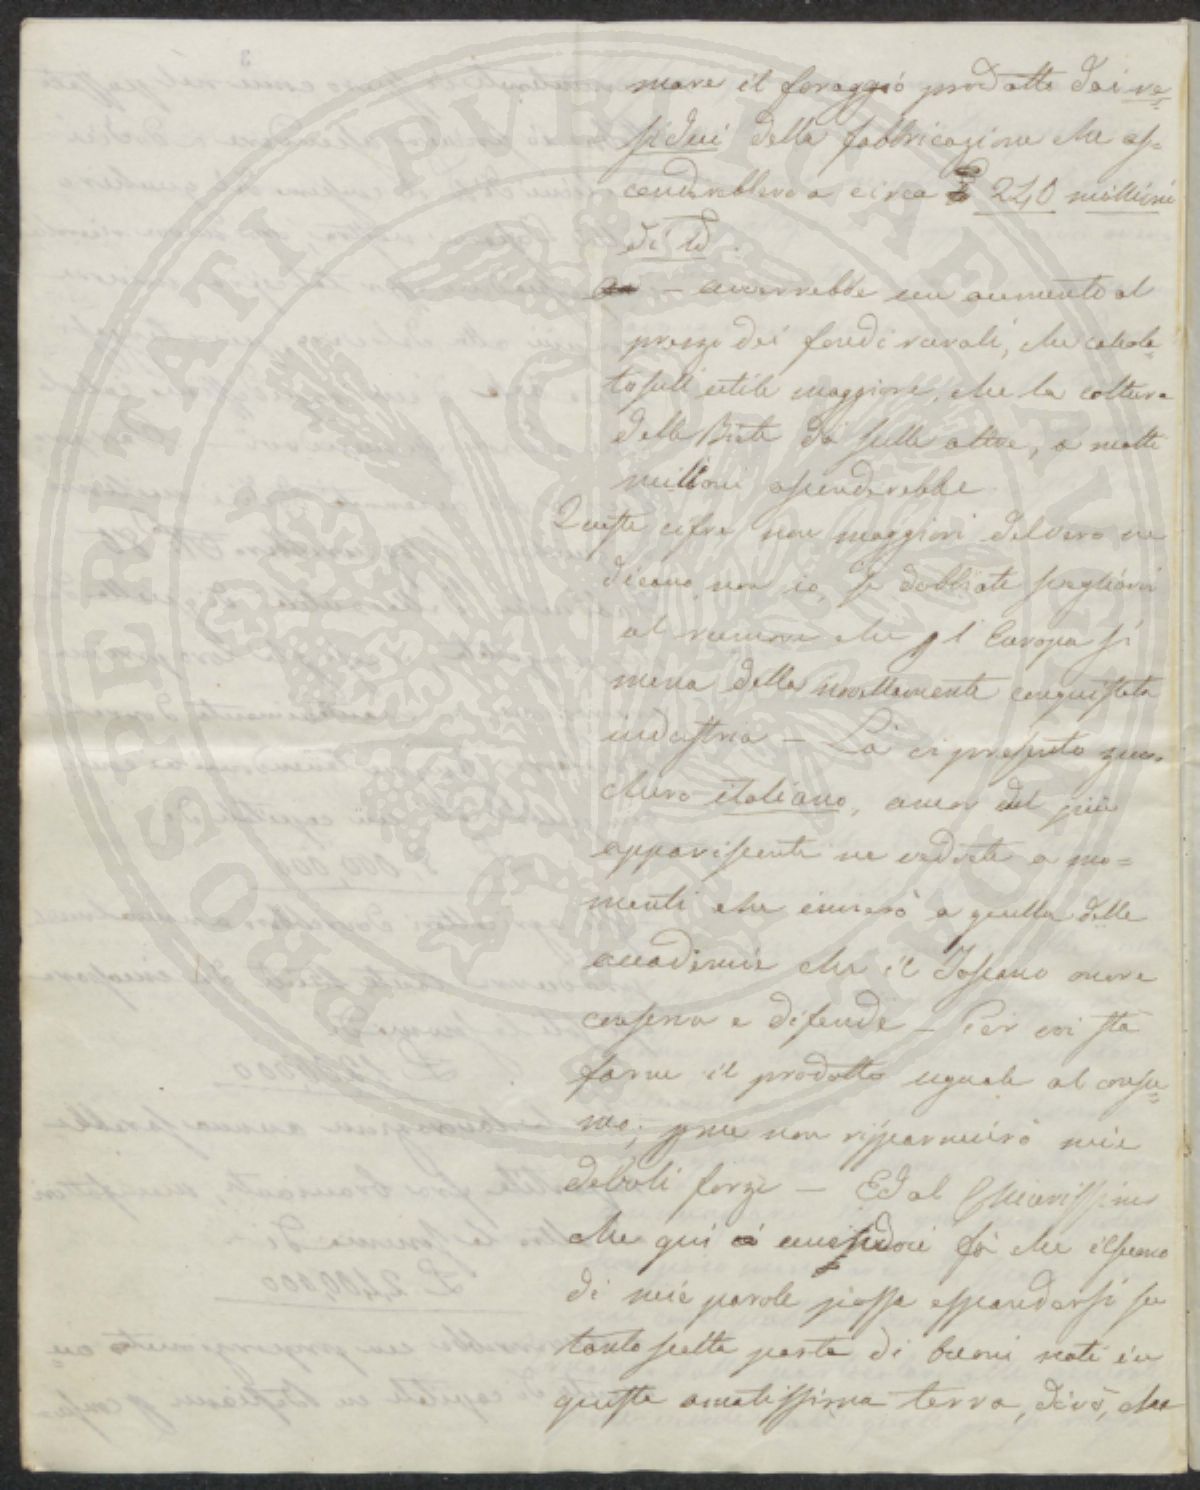 mare il foraggio prodotto dai re=
sidui della fabbricazione che as=
cenderebbero a circa 240 millioni
di id.
— avverrebbe un aumento al
prezzo dei fondi rurali, che calcola=
to sull utile maggiore, che la coltura
delle Biete dà sulle altre, a molti
millioni ascenderebbe
Queste cifre non maggiori del vero ve
dicano, non io, se dobbiate
al rumore che l'Europa si
mena della novellamente conquistata
industria — Là ci presento zuc=
chero italiano, ancor del più
appariscente ne vedrete a mo=
menti che invierò a quella delle
accademie che il Toscano onore
conserva e difende — Per voi sta
farne il prodotto uguale al consu=
mo; me non risparmierò mie
deboli forze — Ed al Chiarissimo
che qui fà che il suono
di mie parole possa espandersi su
tanto scelta parte di buoni nati in
questa amatissima terra, dirò, che
PROSPERITATI PUBLICAE AUGENDAE